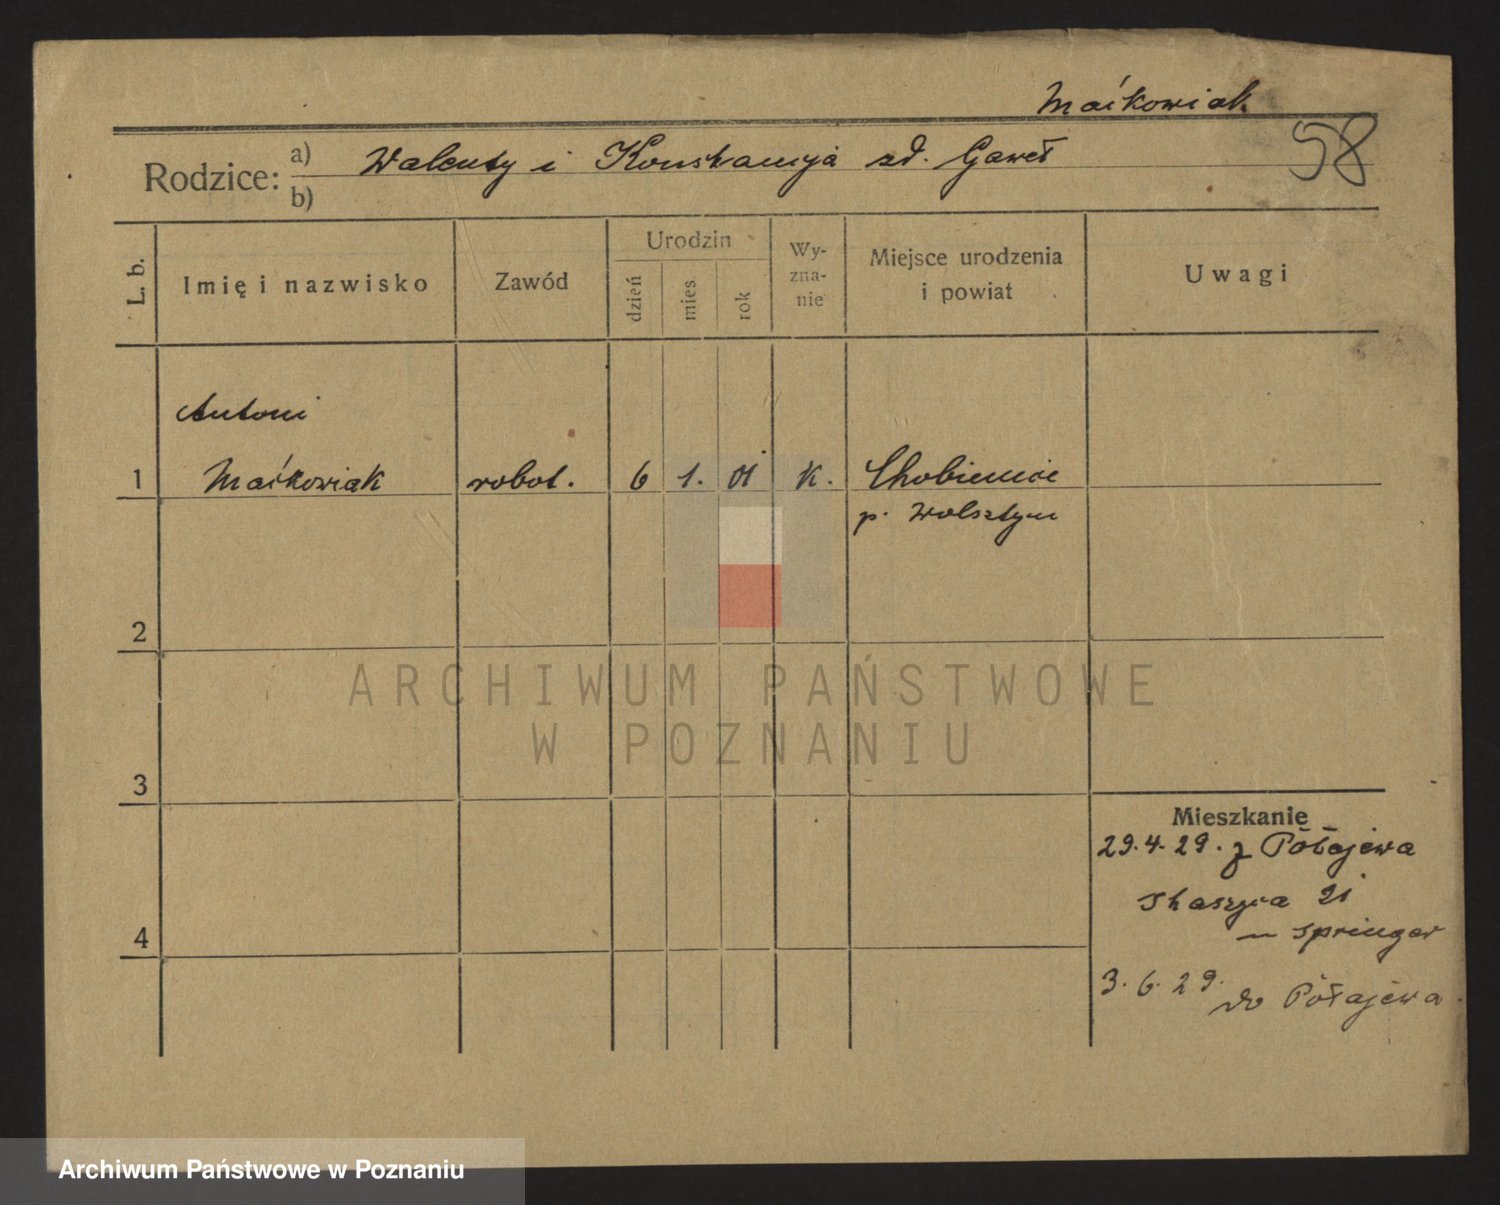 Maćkowiak
58
Rodzice: a) Walenty i Konstancyja zd. Gaweł
b)
L. b.
Imię i nazwisko
Zawód
Urodzin
dzień
mies
rok
Wy-
zna-
nie
Miejsce urodzenia
i powiat
Uwagi
Antoni
1 Maćkowiak robot. 6 1. 01 k. Chobienice
p. Wolsztyn
2
ARCHIWUM PAŃSTWOWE
W POZNANIU
3
Mieszkanie
29.4.29. z Połajewa
Staszyca 21
4
Springer
3.6.29. do Połajewa
Archiwum Państwowe w Poznaniu